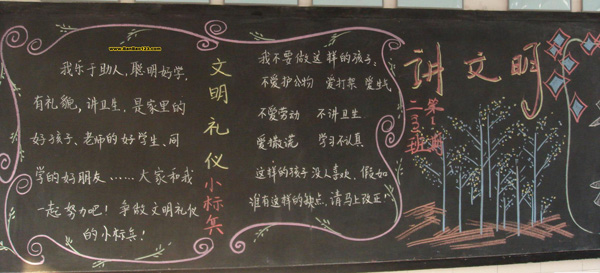 www.BanBao123.com
我乐于助人,聪明好学,
有礼貌,讲卫生,是家里的
好孩子、老师的好学生、同
学的好朋友……大家和我
一起努力吧!争做文明礼仪
的小标兵!
文明礼仪小标兵
我不要做这样的孩子:
不爱护公物 爱打架 爱生气
不爱劳动 不讲卫生
爱撒谎 学习不认真
这样的孩子没人喜欢,假如
谁有这样的缺点,请马上改正!
讲文明
二③班
第1期